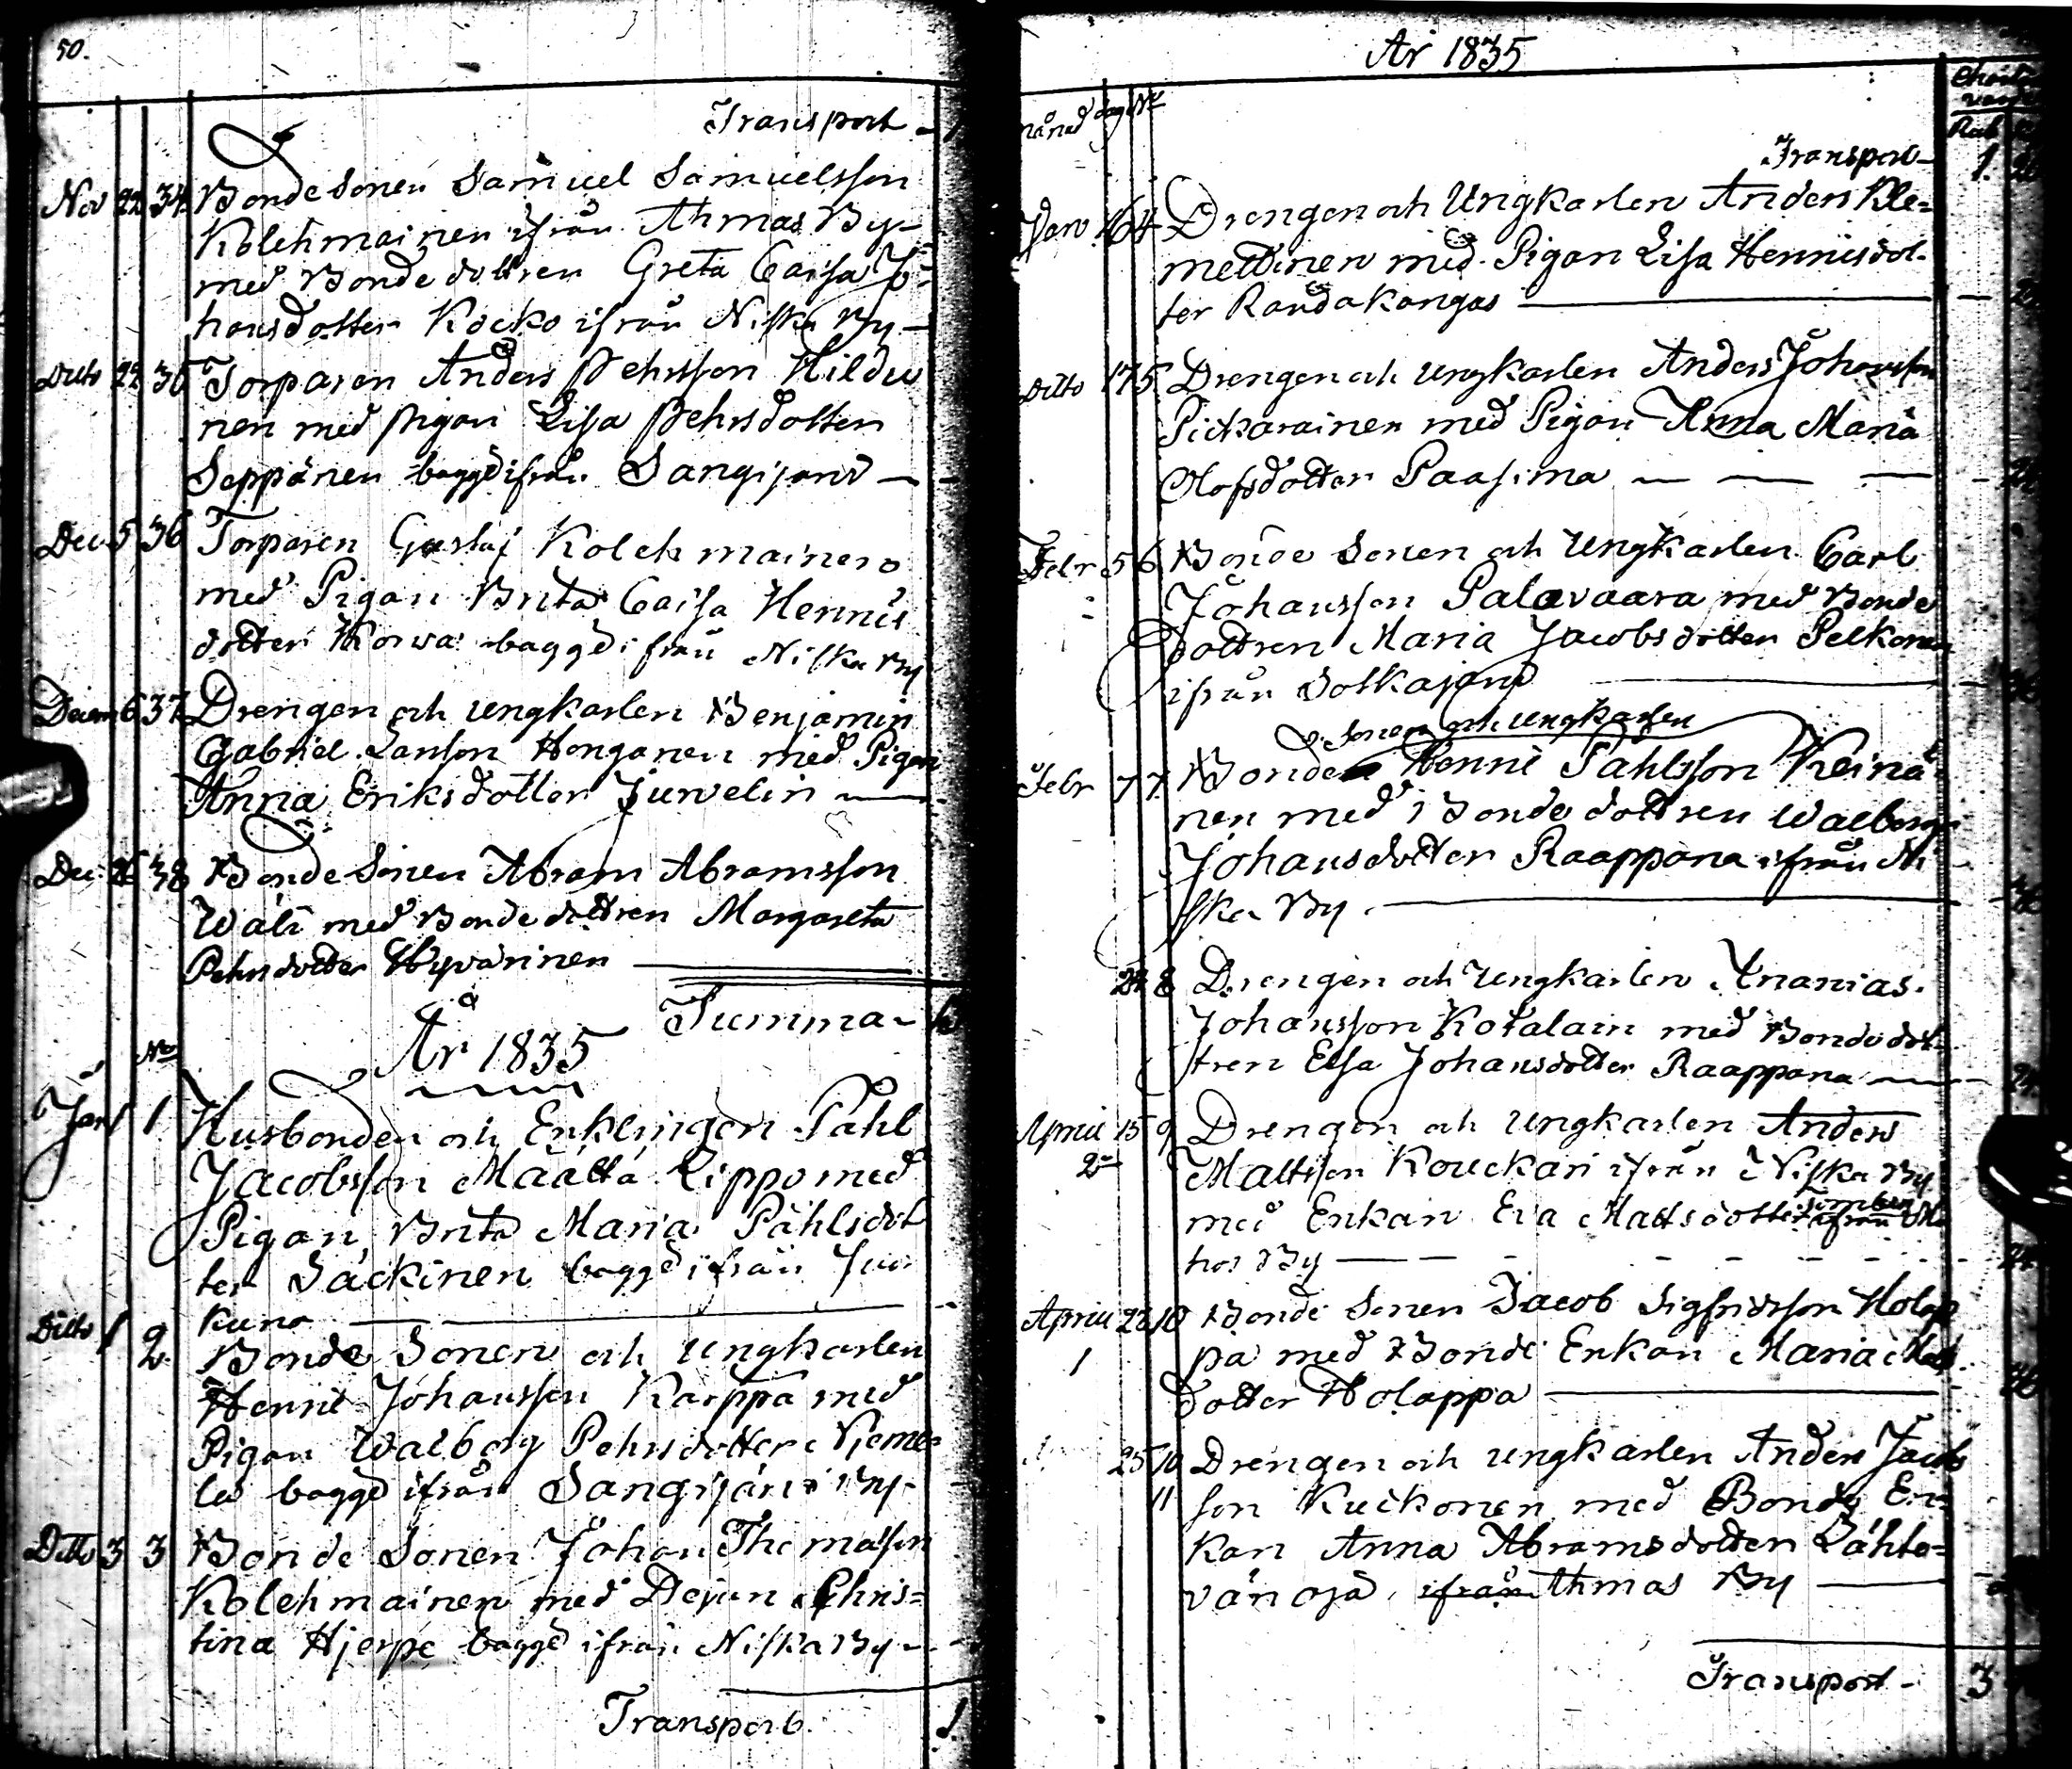 50.
Transport
Nov 22 34 Bonde Sonen Samuel Samuelsson
Kolehmainen ifrån Ahmas By
med Bonde dottren Greta Caisa Jo-
hansdotter Kocko ifrån Niska By
Ditto 22 35 Torparen Anders Pehrsson Hildu
nen med pigan Lisa Pehrsdotter
Seppänen bägge ifrån Sangijarvi
Dec 5 36 Torparen Gustaf Kolehmainen
med Pigan Brita Caisa Hennis
dotter Korwa bägge ifrån Niska By
Decem 6 37 Drengen och ungkarlen Benjamin
Gabriel Honganen med Pigan
Anna Eriksdotter Juvelin
Dec 26 38 Bonde Sonen Abram Abramsson
Wäli med Bonde dottren Margareta
Pehrsdotter Hyvärinen
Summa
År 1835
No
Jan 1 1 Husbonden och Enklingen Påhl
Jacobsson Määttä Lippo med
Pigan Brita Maria Påhlsdot
ter Säckinen bägge ifrån Juor
kuna
Ditto 1 2 Bonde Sonen och ungkarlen
Henric Johansson Karppa med
Pigan Walborg Pehrsdotter Nieme
lä bägge ifrån Sangijärvi By
Ditto 3 3 Bonde Sonen Johan Thomasson
Kolehmainen med Dejan Chris=
tina Hjerpe bägge ifrån Niska By
Transport 1
År 1835
månad dag No
Rub
Transport 1.
Jan 16 4 Drengen och Ungkarlen Anders Kle=
mettinen med Pigan Lisa Hennisdot-
ter Raudakangas
Ditto 17 5 Drengen och ungkarlen Anders Johansson
Pickarainen med Pigan Anna Maria
Olofsdotter Paasima
Febr 5 6 Bonde Sonen och Ungkarlen Carl
Johansson Palovaara med Bonde
dottren Maria Jacobsdotter Pelkonen
ifrån Sotkajärvi
Sonen och ungkarlen
Febr 7 7 Bonde Henric Påhlsson Keinä-
nen med Bonde dottren Walborg
Johansdotter Raappana ifrån Ni
ska By
24 8 Drengen och Ungkarlen Ananias
Johansson Kotalain med Bondedot
tren Elsa Johansdotter Raappana
April 15 9 Drengen och Ungkarlen Anders
2 Mattsson Kouckari ifrån Niska By
med Enkan Eva Mattsdotter ifrån
hos By
April 23 10 Bonde Sonen Jacob Sigfridsson Holap
1 pa med Bonde Enkan Maria Mats
dotter Holappa
25 10 Drengen och ungkarlen Anders Jacobs
11 son Kuckonen med Bonde En
kan Anna Abramsdotter Lähte=
vänoja, ifrån Ahmas By
Transport 3